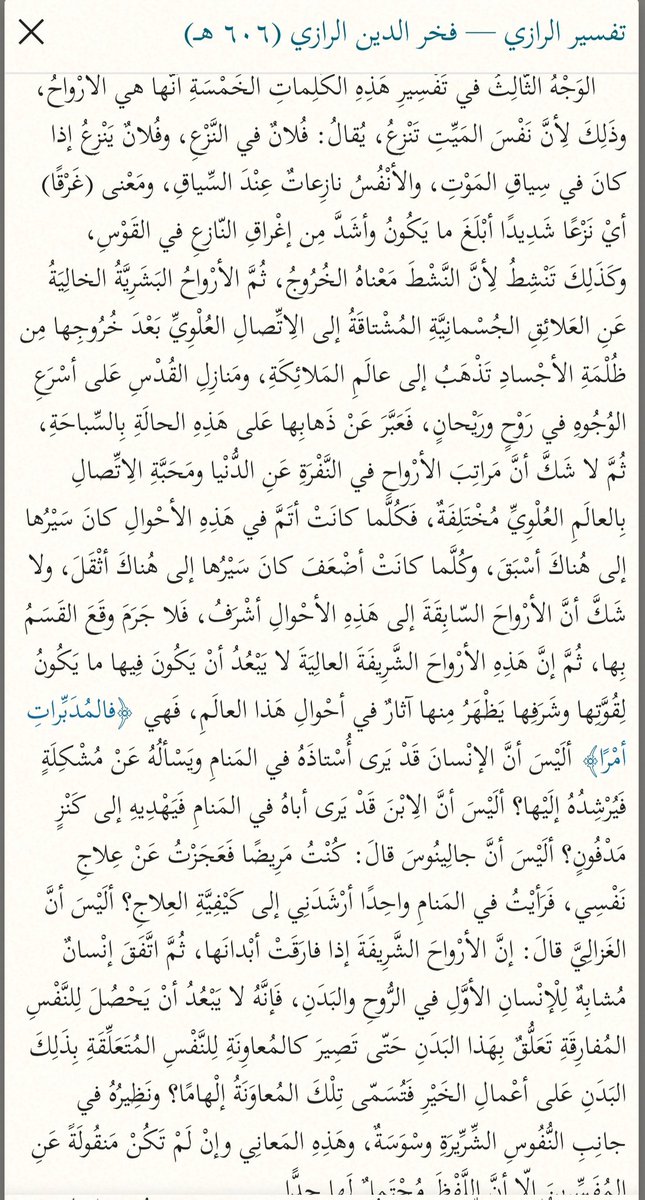 تفسير الرازي — فخر الدين الرازي (٦٠٦ هـ)
الوَجْهُ الثّالِثُ في تَفْسِيرِ هَذِهِ الكَلِماتِ الخَمْسَةِ أنَّها هي الأرْواحُ،
وذَلِكَ لِأنَّ نَفْسَ المَيِّتِ تَنْزِعُ، يُقالُ: فُلانٌ في النَّزْعِ، وفُلانٌ يَنْزِعُ إذا
كانَ في سِياقِ المَوْتِ، والأنْفُسُ نازِعاتٌ عِنْدَ السِّياقِ، ومَعْنى (غَرْقًا)
أيْ نَزْعًا شَدِيدًا أبْلَغَ ما يَكُونُ وأشَدَّ مِن إغْراقِ النّازِعِ في القَوْسِ،
وكَذَلِكَ تَنْشِطُ لِأنَّ النَّشْطَ مَعْناهُ الخُرُوجُ، ثُمَّ الأرْواحُ البَشَرِيَّةُ الخالِيَةُ
عَنِ العَلائِقِ الجُسْمانِيَّةِ المُشْتاقَةُ إلى الِاتِّصالِ العُلْوِيِّ بَعْدَ خُرُوجِها مِن
ظُلْمَةِ الأجْسادِ تَذْهَبُ إلى عالَمِ المَلائِكَةِ، ومَنازِلِ القُدْسِ عَلى أسْرَعِ
الوُجُوهِ في رَوْحٍ ورَيْحانٍ، فَعَبَّرَ عَنْ ذَهابِها عَلى هَذِهِ الحالَةِ بِالسِّباحَةِ،
ثُمَّ لا شَكَّ أنَّ مَراتِبَ الأرْواحِ في النَّفْرَةِ عَنِ الدُّنْيا ومَحَبَّةِ الِاتِّصالِ
بِالعالَمِ العُلْوِيِّ مُخْتَلِفَةٌ، فَكُلَّما كانَتْ أتَمَّ في هَذِهِ الأحْوالِ كانَ سَيْرُها
إلى هُناكَ أسْبَقَ، وكُلَّما كانَتْ أضْعَفَ كانَ سَيْرُها إلى هُناكَ أثْقَلَ، ولا
شَكَّ أنَّ الأرْواحَ السّابِقَةَ إلى هَذِهِ الأحْوالِ أشْرَفُ، فَلا جَرَمَ وقَعَ القَسَمُ
بِها، ثُمَّ إنَّ هَذِهِ الأرْواحَ الشَّرِيفَةَ العالِيَةَ لا يَبْعُدُ أنْ يَكُونَ فِيها ما يَكُونُ
لِقُوَّتِها وشَرَفِها يَظْهَرُ مِنها آثارٌ في أحْوالِ هَذا العالَمِ، فَهي ﴿فالمُدَبِّراتِ
أمْرًا﴾ ألَيْسَ أنَّ الإنْسانَ قَدْ يَرى أُسْتاذَهُ في المَنامِ ويَسْألُهُ عَنْ مُشْكِلَةٍ
فَيُرْشِدُهُ إلَيْها؟ ألَيْسَ أنَّ الِابْنَ قَدْ يَرى أباهُ في المَنامِ فَيَهْدِيهِ إلى كَنْزٍ
مَدْفُونٍ؟ ألَيْسَ أنَّ جالِينُوسَ قالَ: كُنْتُ مَرِيضًا فَعَجَزْتُ عَنْ عِلاجِ
نَفْسِي، فَرَأيْتُ في المَنامِ واحِدًا أرْشَدَنِي إلى كَيْفِيَّةِ العِلاجِ؟ ألَيْسَ أنَّ
الغَزالِيَّ قالَ: إنَّ الأرْواحَ الشَّرِيفَةَ إذا فارَقَتْ أبْدانَها، ثُمَّ اتَّفَقَ إنْسانٌ
مُشابِهٌ لِلْإنْسانِ الأوَّلِ في الرُّوحِ والبَدَنِ، فَإنَّهُ لا يَبْعُدُ أنْ يَحْصُلَ لِلنَّفْسِ
المُفارِقَةِ تَعَلُّقٌ بِهَذا البَدَنِ حَتّى تَصِيرَ كالمُعاوِنَةِ لِلنَّفْسِ المُتَعَلِّقَةِ بِذَلِكَ
البَدَنِ عَلى أعْمالِ الخَيْرِ فَتُسَمّى تِلْكَ المُعاوَنَةُ إلْهامًا؟ ونَظِيرُهُ في
جانِبِ النُّفُوسِ الشِّرِّيرَةِ وسْوَسَةٌ، وهَذِهِ المَعانِي وإنْ لَمْ تَكُنْ مَنقُولَةً عَنِ
المُفَسِّرِينَ إلّا أنَّ اللَّفْظَ مُحْتَمِلٌ لَها جِدًّا